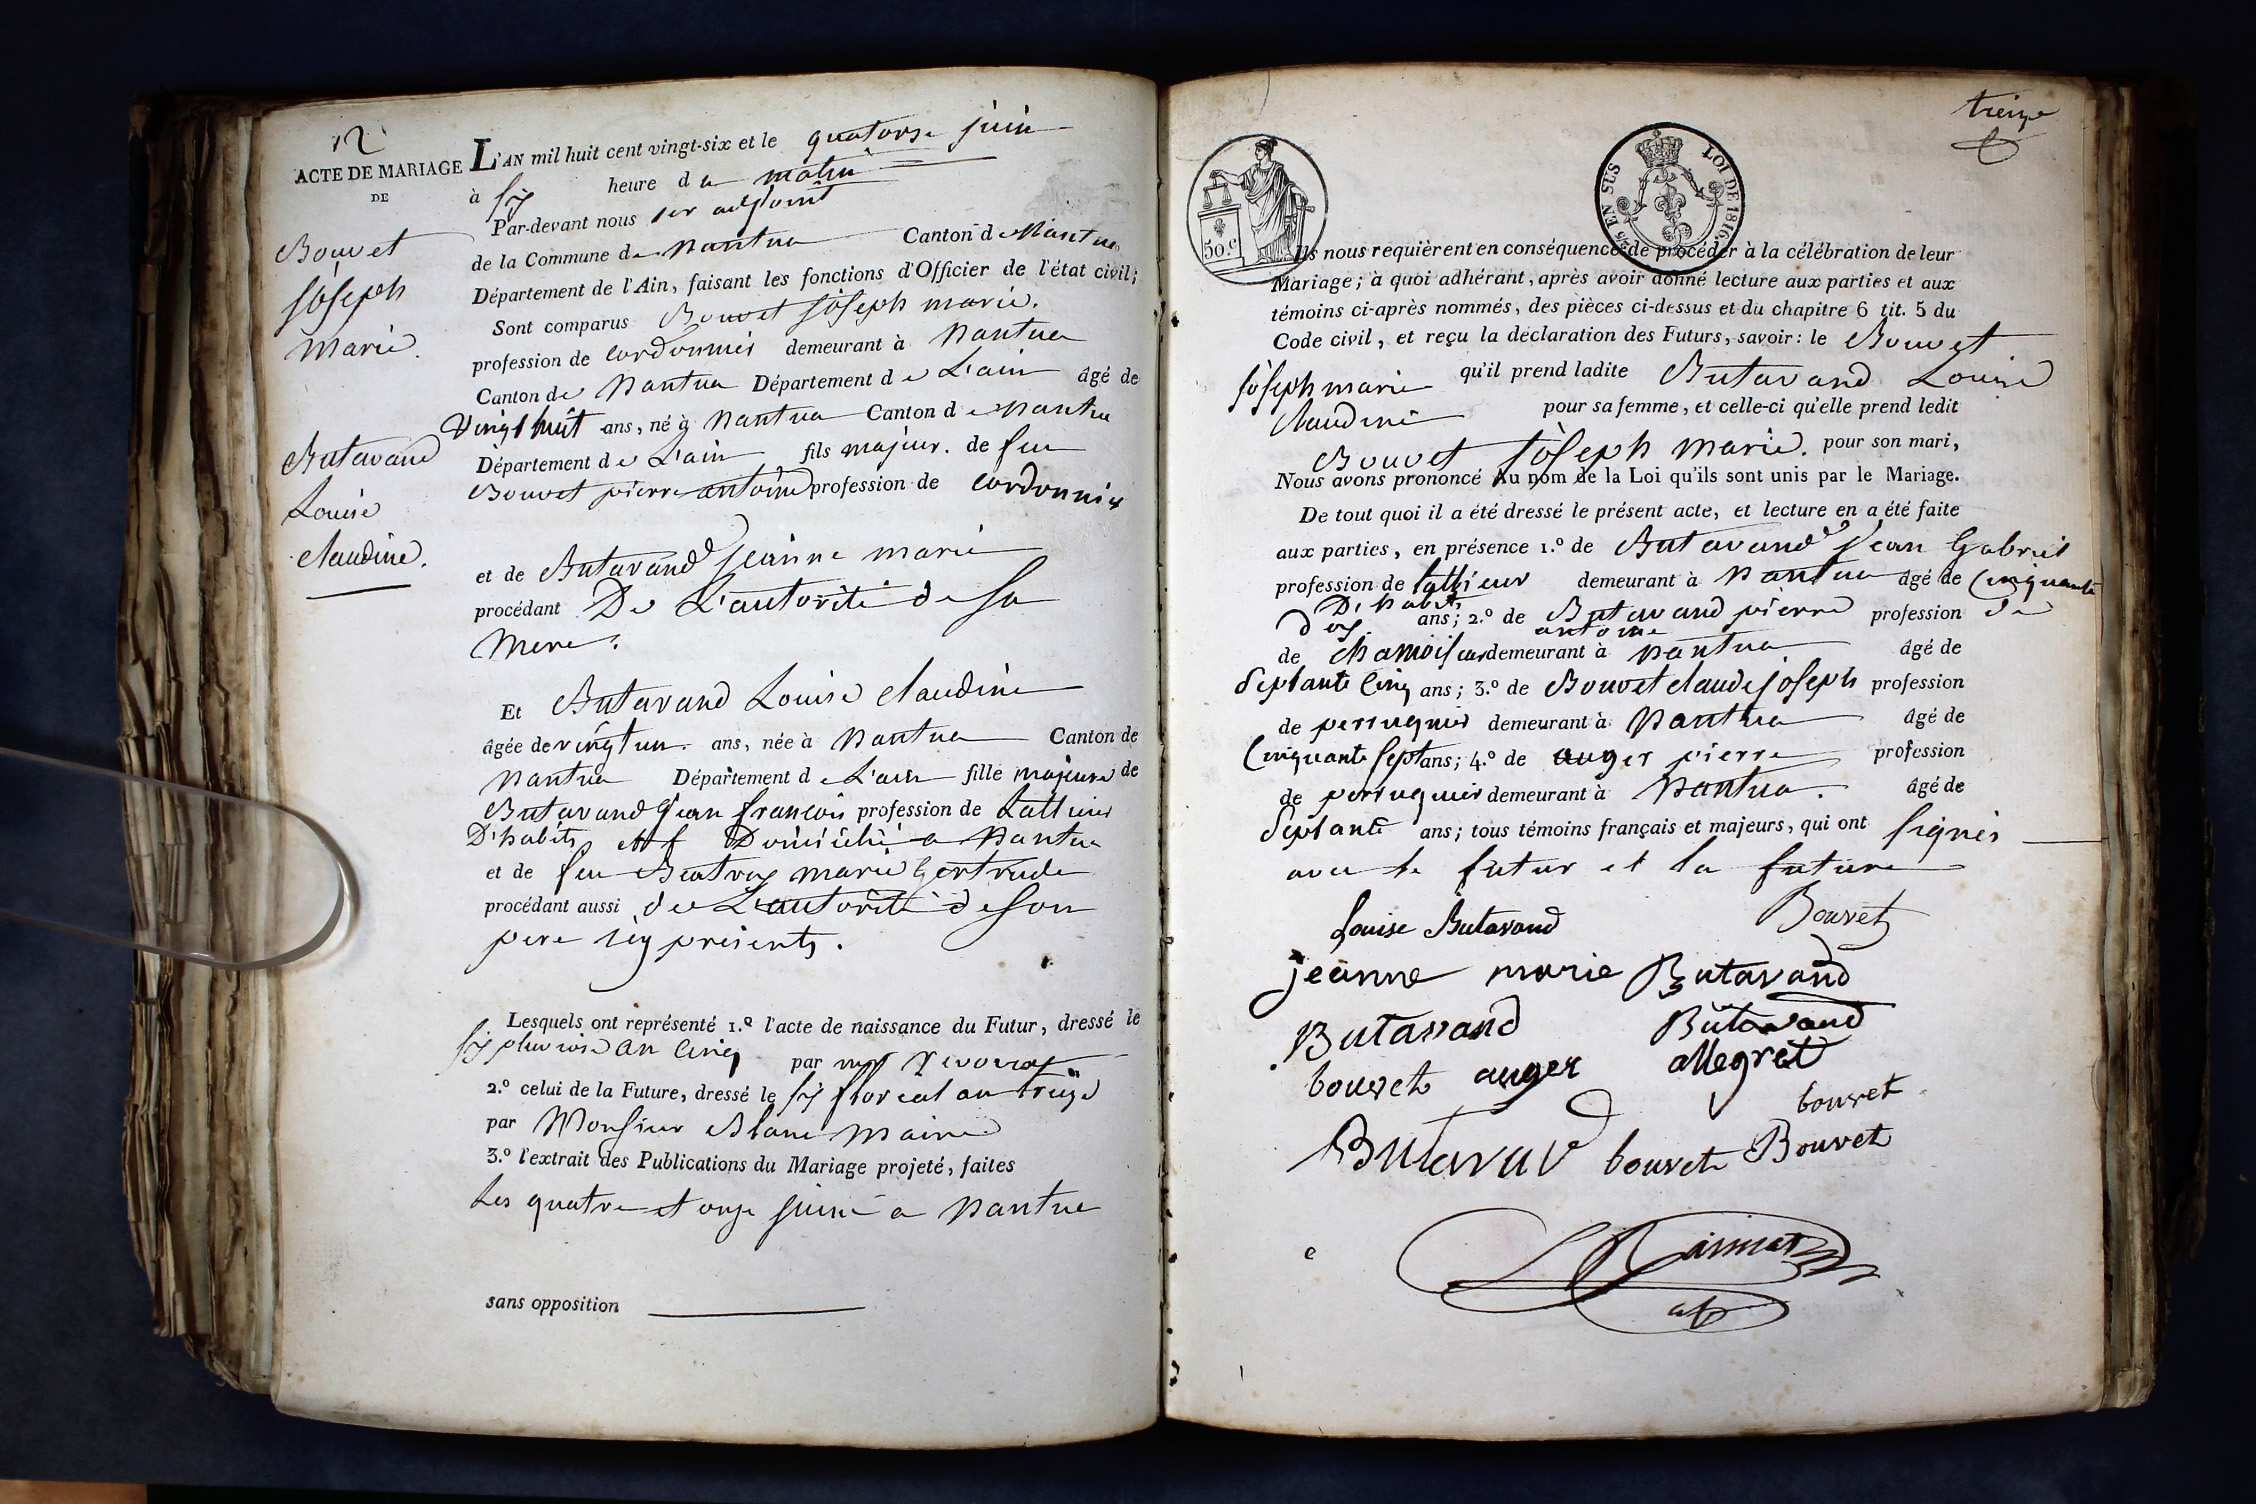 12
ACTE DE MARIAGE
DE
Bouvet
joseph
marie.
Butavand
Louise
claudine.
L'AN mil huit cent vingt-six et le quatorze juin
à six heure du matin
Par-devant nous 1er adjoint
de la Commune de nantua Canton de Nantua
Département de l'Ain, faisant les fonctions d'Officier de l'état civil;
Sont comparus Bouvet joseph marie.
profession de cordonnier demeurant à nantua
Canton de nantua Département de L'ain âgé de
vingt huit ans, né à nantua Canton de nantua
Département de L'ain fils majeur. de feu
Bouvet pierre antoine profession de cordonnier
et de Butavand jeanne marie
procédant De L'autorité de sa
mere.
Et Butavand Louise claudine
âgée de vingt un. ans, née à nantua Canton de
nantua Département de L'ain fille majeure de
Butavand jean francois profession de tallieur
D'habits Domicilié a nantua
et de feu marie Gertrude
procédant aussi de L'autorité de son
pere icy présents.
Lesquels ont représenté 1.º l'acte de naissance du Futur, dressé le
six pluviose an cinq par
2.º celui de la Future, dressé le six floreal an treize
par Monsieur Blanc maire
3.º l'extrait des Publications du Mariage projeté, faites
Les quatre et onze juin a nantua
sans opposition
treize
50.c
25 EN SUS
LOI DE 1816.
Ils nous requièrent en conséquence de procéder à la célébration de leur
Mariage; à quoi adhérant, après avoir donné lecture aux parties et aux
témoins ci-après nommés, des pièces ci-dessus et du chapitre 6 tit. 5 du
Code civil, et reçu la déclaration des Futurs, savoir: le Bouvet
joseph marie qu'il prend ladite Butavand Louise
claudine pour sa femme, et celle-ci qu'elle prend ledit
Bouvet joseph marie. pour son mari,
Nous avons prononcé Au nom de la Loi qu'ils sont unis par le Mariage.
De tout quoi il a été dressé le présent acte, et lecture en a été faite
aux parties, en présence 1.º de Butavand jean Gabriel
profession de tallieur demeurant à nantua âgé de cinquante
D'habits
dex ans; 2.º de Butavand pierre profession de
antoine
de chamoiseur demeurant à nantua âgé de
septante cinq ans; 3.º de Bouvet claude joseph profession
de perruquier demeurant à nantua âgé de
cinquante sept ans; 4.º de auger pierre profession
de perruquier demeurant à nantua. âgé de
septante ans; tous témoins français et majeurs, qui ont signés
avec le futur et la future
Louise Butavand Bouvet
jeanne marie Butavand
Butavand Butavand
bouvet auger allegret
bouvet
Butavand bouvet Bouvet